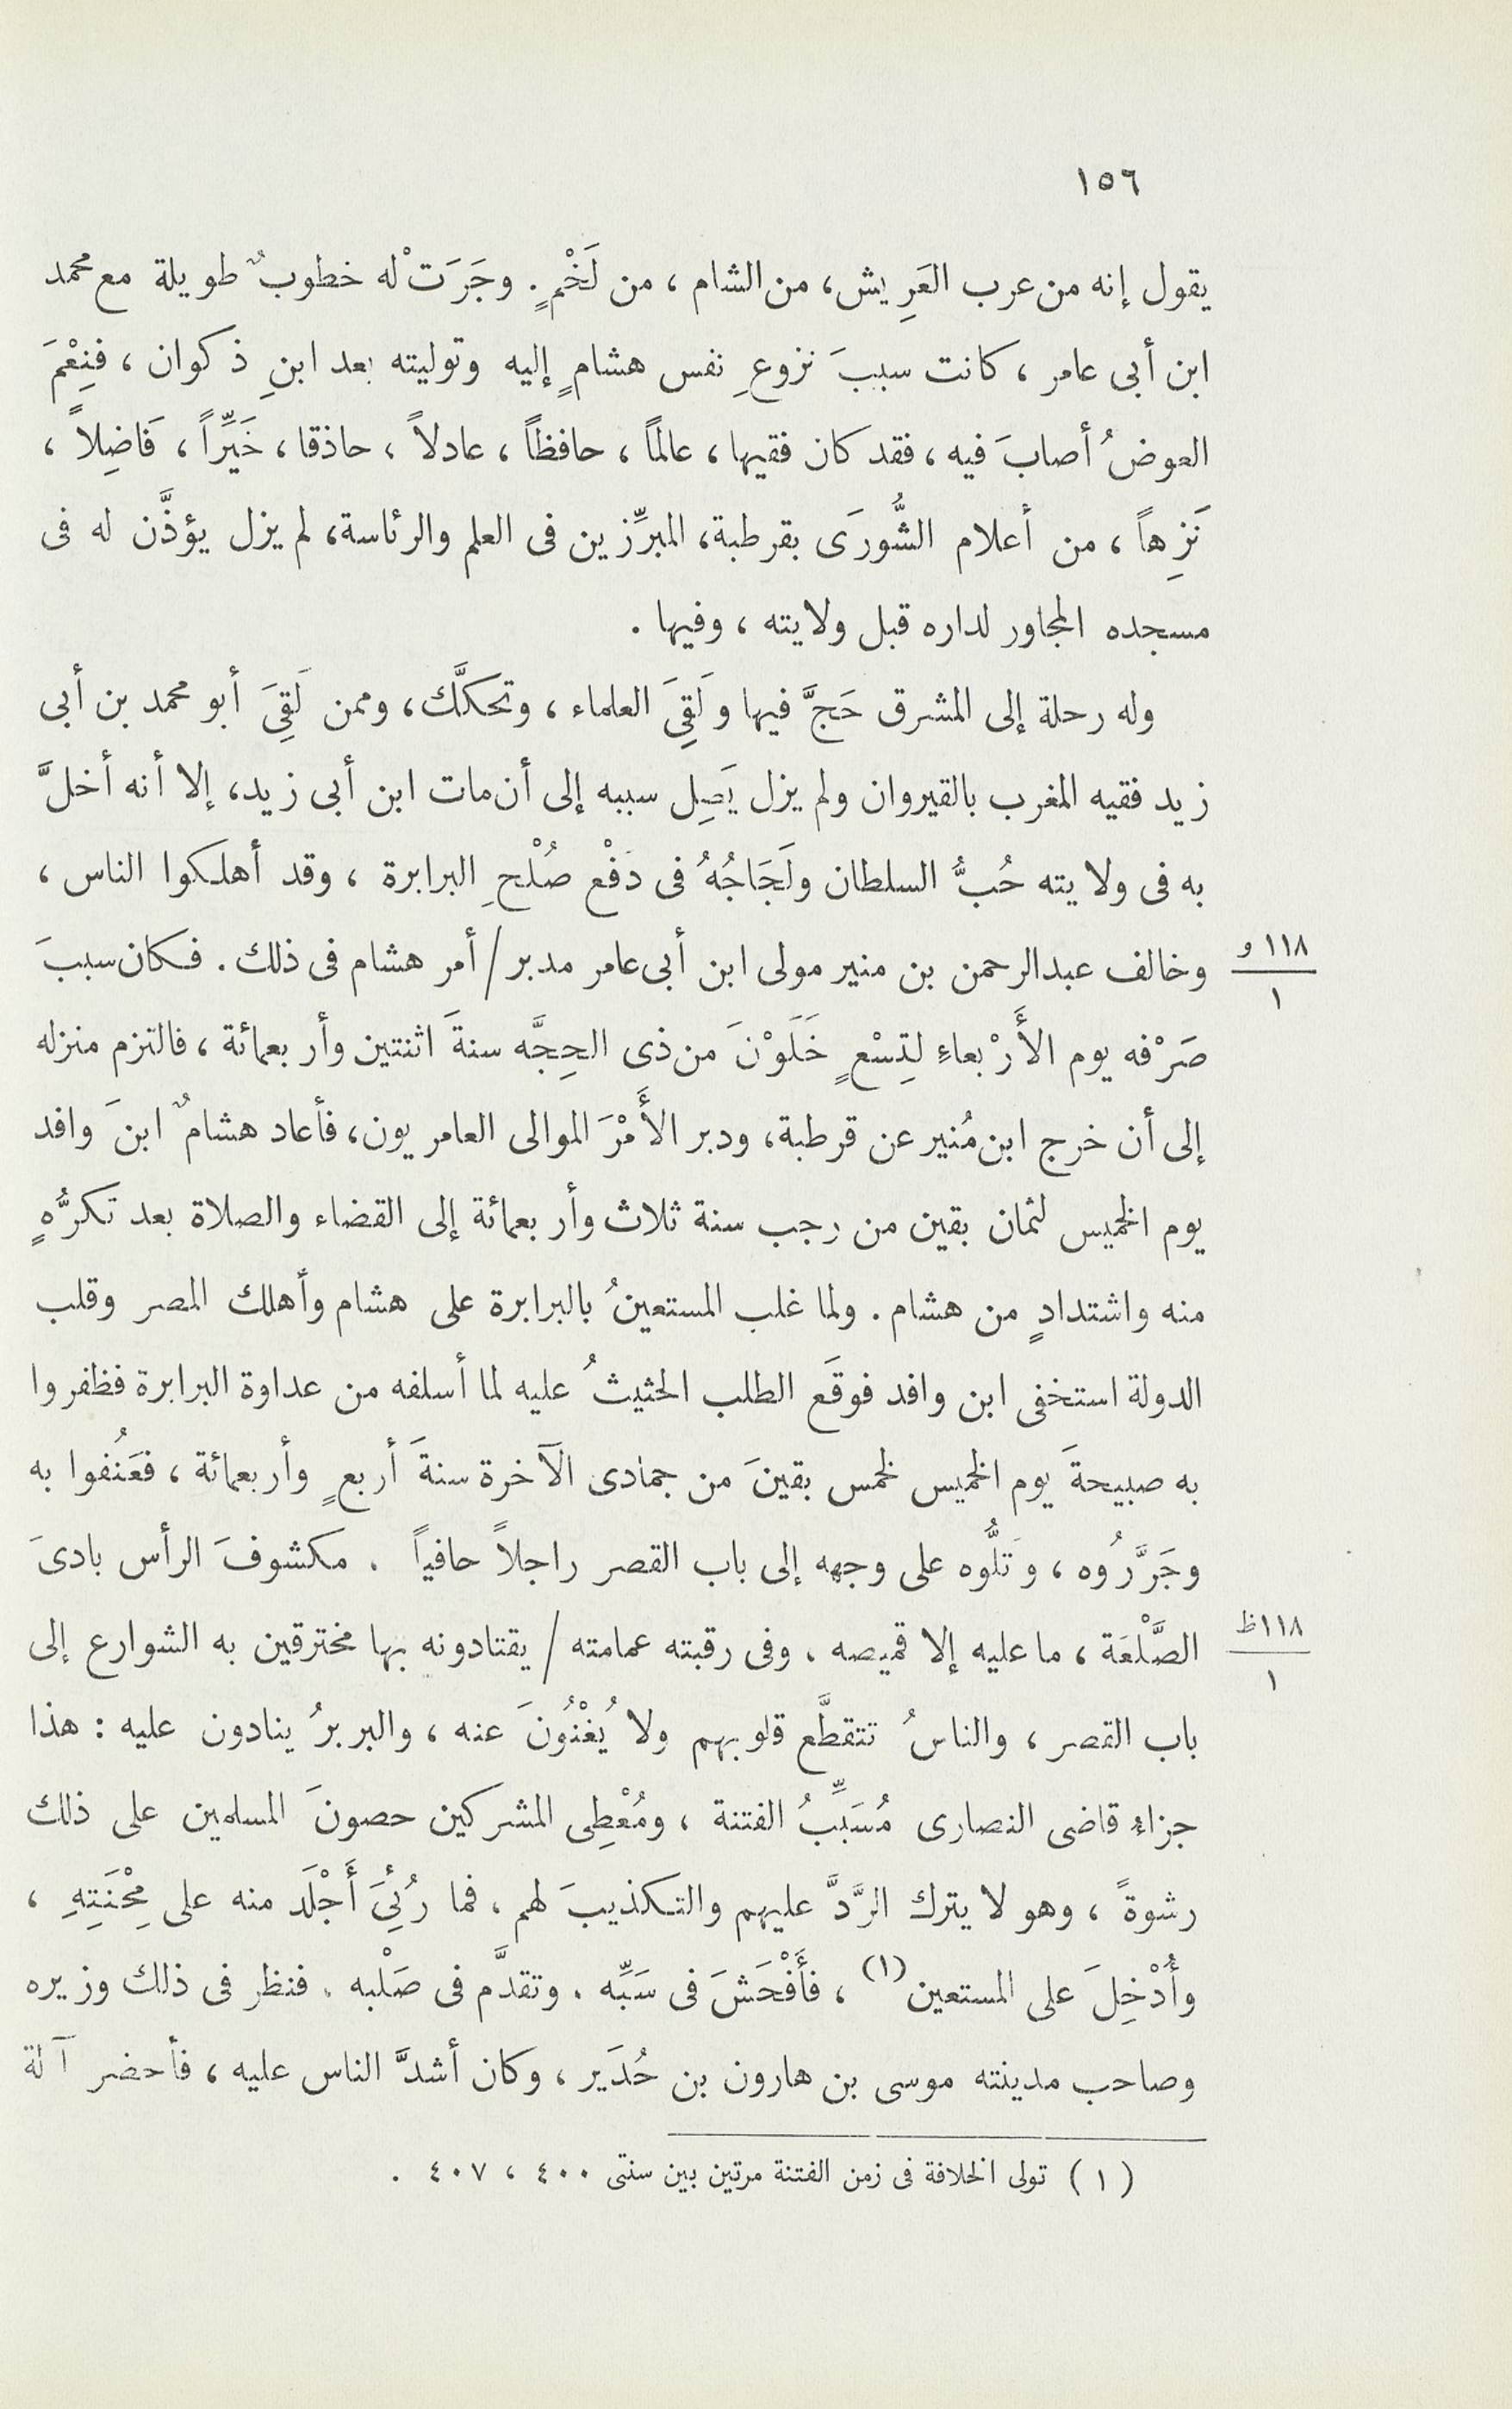 ١٥٦
يقول إنه من عرب العَرِيش، من الشام، من لَخْمٍ. وجَرَتْ له خطوبٌ طويلة مع محمد
ابن أبى عامر، كانت سببَ نزوعِ نفس هشامٍ إليه وتوليته بعد ابنِ ذكوان، فنِعْمَ
العوضُ أصابَ فيه، فقد كان فقيها، عالماً، حافظاً، عادلاً، حاذقا، خَيِّراً، فَاضِلاً،
نَزِهاً، من أعلام الشُّورَى بقرطبة، المبرِّزين فى العلم والرئاسة، لم يزل يؤذَّن له فى
مسجده المجاور لداره قبل ولايته، وفيها.
وله رحلة إلى المشرق حَجَّ فيها ولَقِىَ العلماء، وتحكَّك، وممن لَقِىَ أبو محمد بن أبى
زيد فقيه المغرب بالقيروان ولم يزل يَصِل سببه إلى أن مات ابن أبى زيد، إلا أنه أخلَّ
به فى ولايته حُبُّ السلطان ولَجَاجُهُ فى دَفْع صُلْحِ البرابرة، وقد أهلكوا الناس،
١١٨ و
وخالف عبدالرحمن بن منير مولى ابن أبى عامر مدبر / أمر هشام فى ذلك. فكان سببَ
١
صَرْفه يوم الأَرْبعاءِ لتِسْعٍ خَلَوْنَ من ذى الحِجَّه سنةَ اثنتين وأربعمائة، فالتزم منزله
إلى أن خرج ابن مُنير عن قرطبة، ودبر الأَمْرَ الموالى العامريون، فأعاد هشامٌ ابنَ وافد
يوم الخميس لثمان بقين من رجب سنة ثلاث وأربعمائة إلى القضاء والصلاة بعد تكرُّهٍ
منه واشتدادٍ من هشام. ولما غلب المستعينُ بالبرابرة على هشام وأهلك المصر وقلب
الدولة استخفى ابن وافد فوقَع الطلب الحثيثُ عليه لما أسلفه من عداوة البرابرة فظفروا
به صبيحةَ يوم الخميس لخمس بقينَ من جمادى الآخرة سنةَ أربعٍ وأربعمائة، فعَنُفوا به
وجَرَّرُوه، وَتلُّوه على وجهه إلى باب القصر راجلاً حافياً. مكشوفَ الرأس بادىَ
١١٨ظ
الصَّلْعَة، ما عليه إلا قميصه، وفى رقبته عمامته / يقتادونه بها مخترقين به الشوارع إلى
١
باب القصر، والناسُ تتقطَّع قلوبهم ولا يُغْنُونَ عنه، والبربرُ ينادون عليه: هذا
جزاء قاضى النصارى مُسَبِّبُ الفتنة، ومُعْطِى المشركين حصونَ المسلمين على ذلك
رشوةً، وهو لا يترك الرَّدَّ عليهم والتكذيبَ لهم، فما رُئِىَ أَجْلَد منه على مِحْنَتِهِ،
وأُدْخِلَ على المستعين (١)، فأَفْحَشَ فى سَبِّه. وتقدَّم فى صَلْبه. فنظر فى ذلك وزيره
وصاحب مدينته موسى بن هارون بن حُدَير، وكان أشدَّ الناس عليه، فأحضر آلة
(١) تولى الخلافة فى زمن الفتنة مرتين بين سنتى ٤٠٠، ٤٠٧.